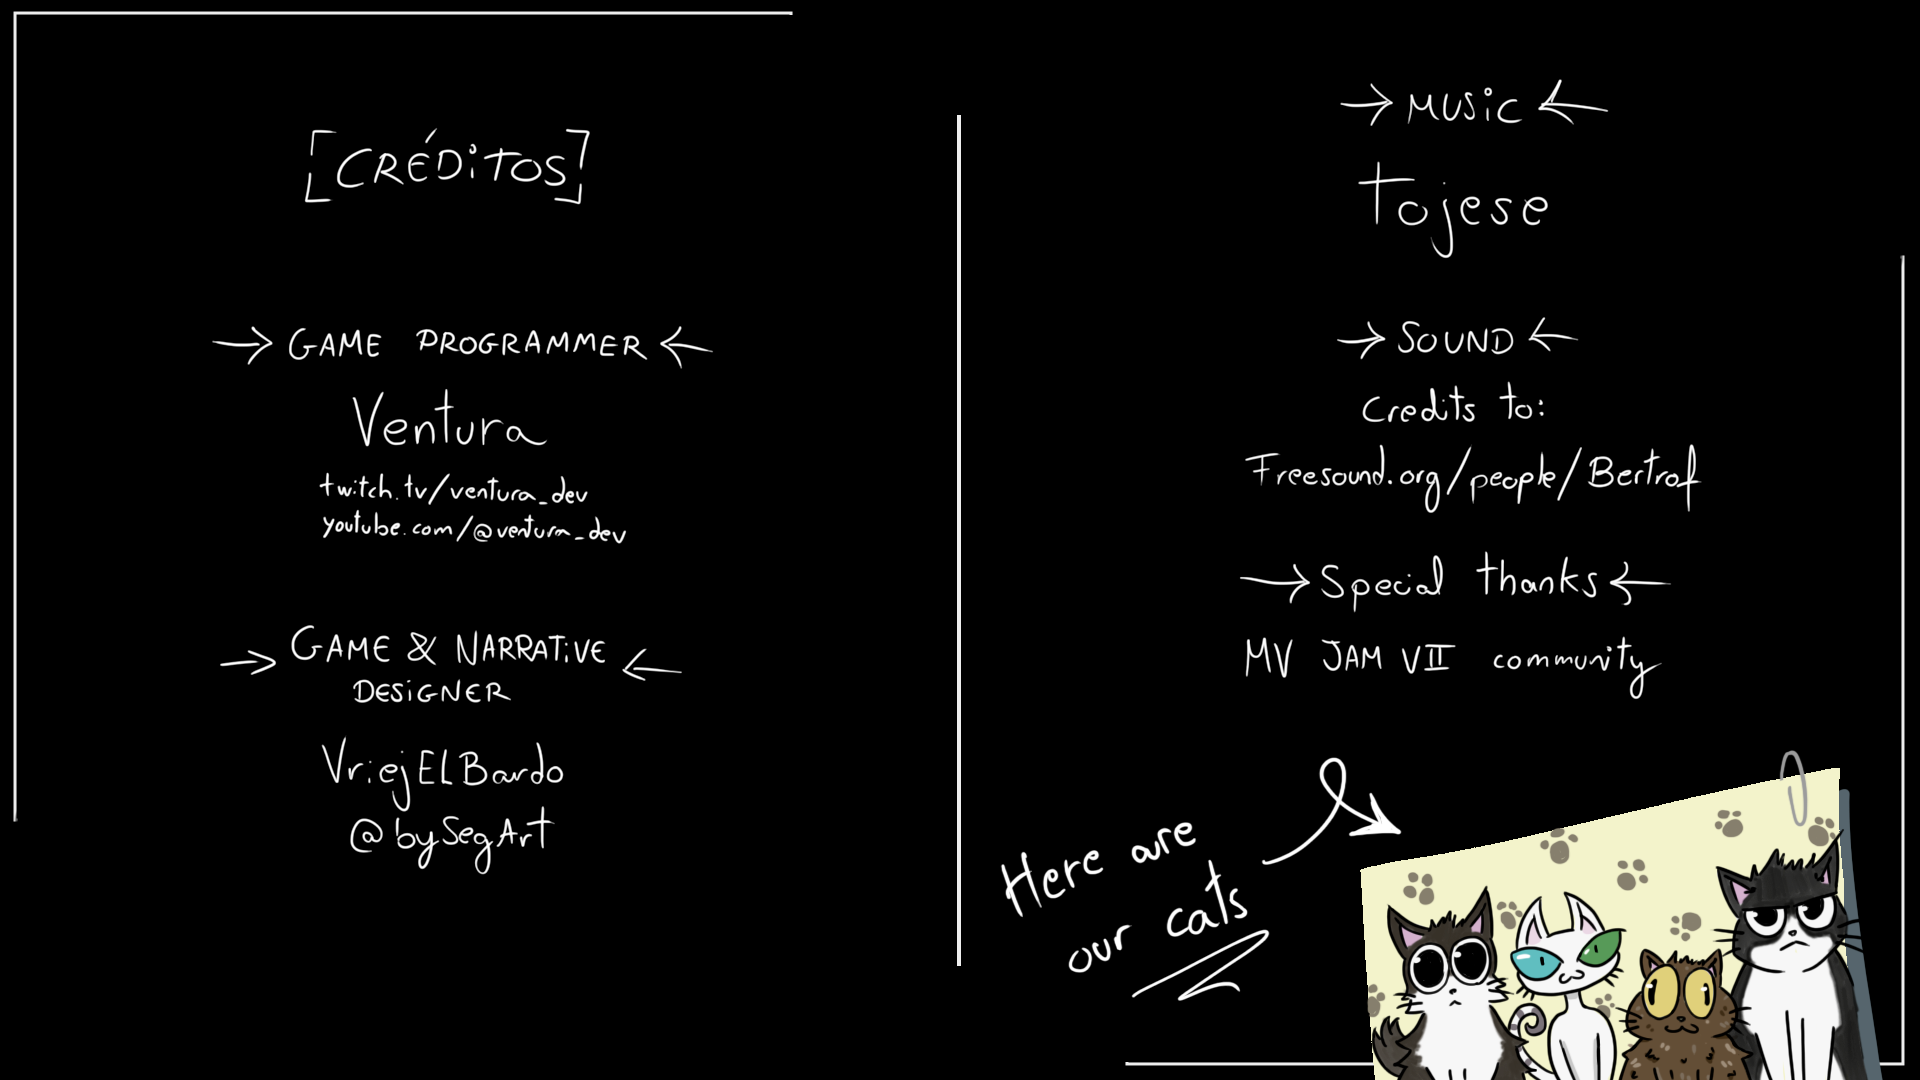 [CRÉDITOS]
GAME PROGRAMMER
Ventura
twitch.tv/ventura_dev
youtube.com/@ventura_dev
GAME & NARRATIVE
DESIGNER
VriejELBardo
@bySegArt
MUSIC
Tojese
SOUND
Credits to:
Freesound.org/people/Bertrof
Special thanks
MV JAM VII community
Here are
our cats